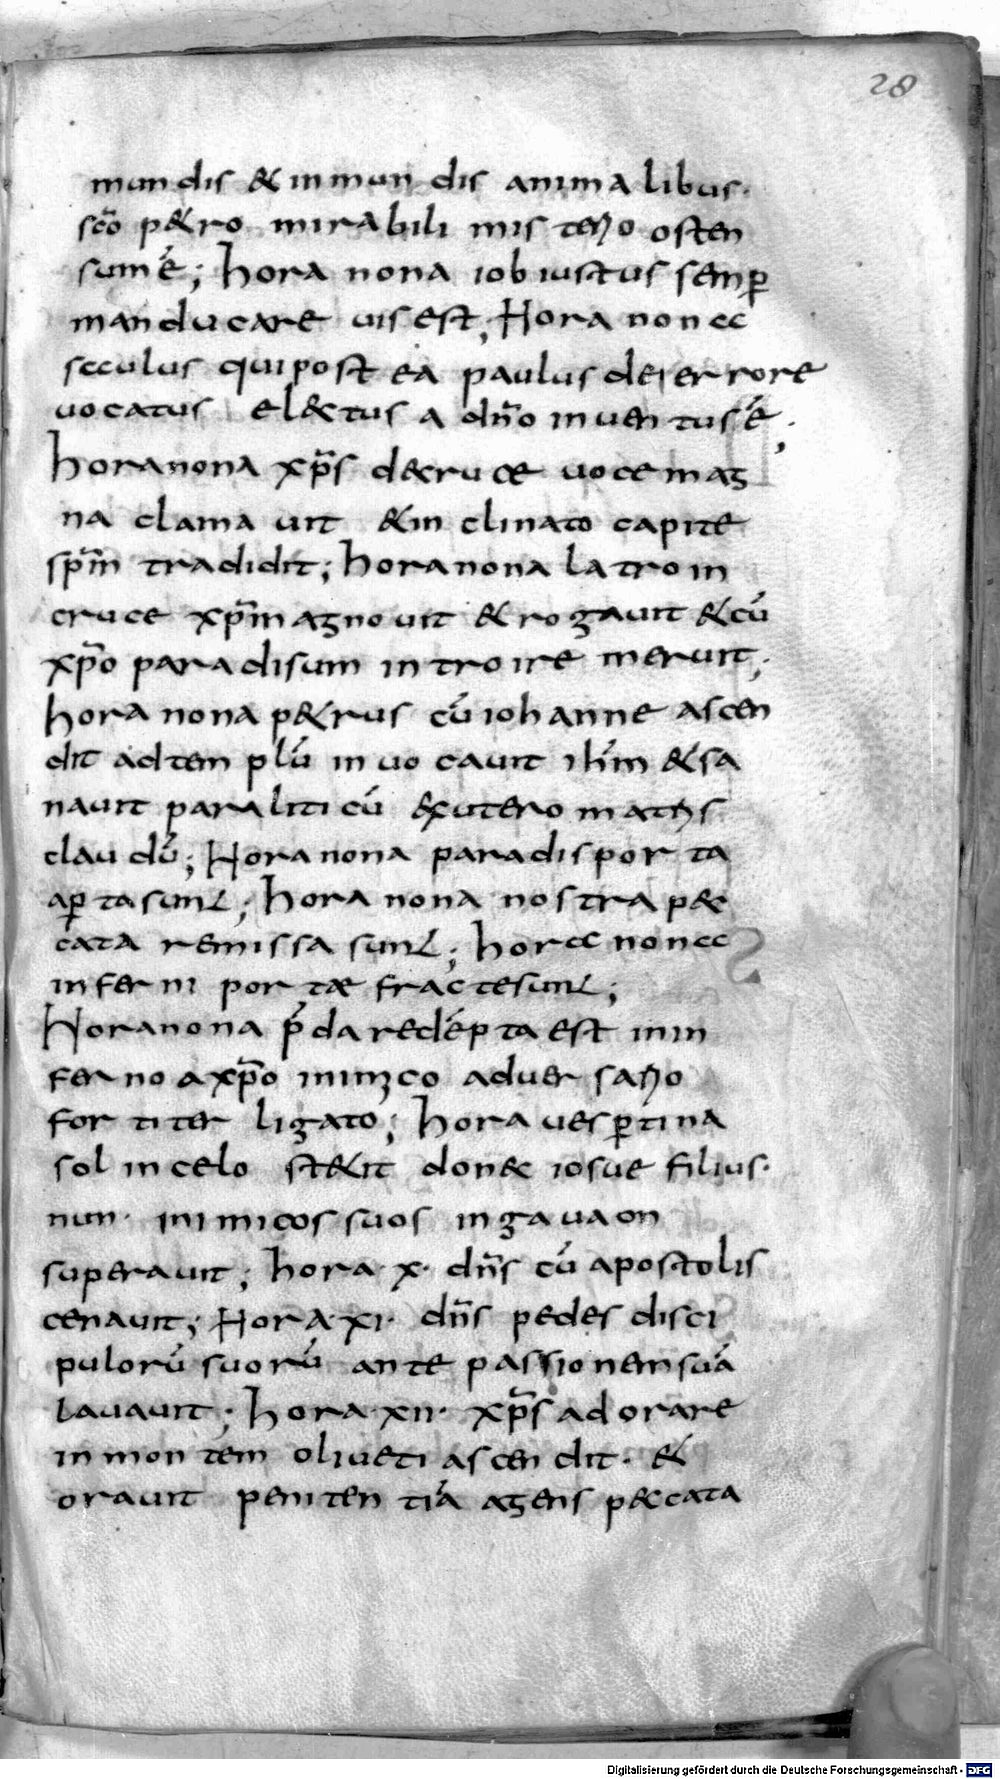 28
mundis & inmundis animalibus·
sc̅o p&ro mirabili misterio osten
sum ē; hora nona iob iustus semꝑ
manducare uisest; Hora nona
saulus qui post ea paulus de errore
uocatus electus a dn̅o inuentus ē;
hora nona xp̅s decruce uoce mag
na clamauit & inclinato capite
sp̅m tradidit; hora nona latro in
cruce xp̅m agnouit & rogauit & cū
xp̅o paradisum introire meruit;
hora nona p&rus cū iohanne ascen
dit ad templū inuocauit ih̅m & sa
nauit paraliticū ex utero matris
claudū; Hora nona paradis porta
aꝑta sunt; hora nona nostra pec
cata remissa sunt; hora nona
inferni portae fracte sunt;
Hora nona p̄da redēpta est in in
ferno a xp̅o inimico aduersario
fortiter ligato; hora uesꝑtina
sol in celo stetit donec iosue filius·
nun· inimicos suos in gauaon
superauit; hora·x· dn̅s cū apostolis
cenauit; Hora·xi· dn̅s pedes disci
pulorū suorū ante passionem suā
lauauit; hora·xii· xp̅s adorare
in montem oliueti ascendit· &
orauit penitentiā agens peccata
Digitalisierung gefördert durch die Deutsche Forschungsgemeinschaft - DFG